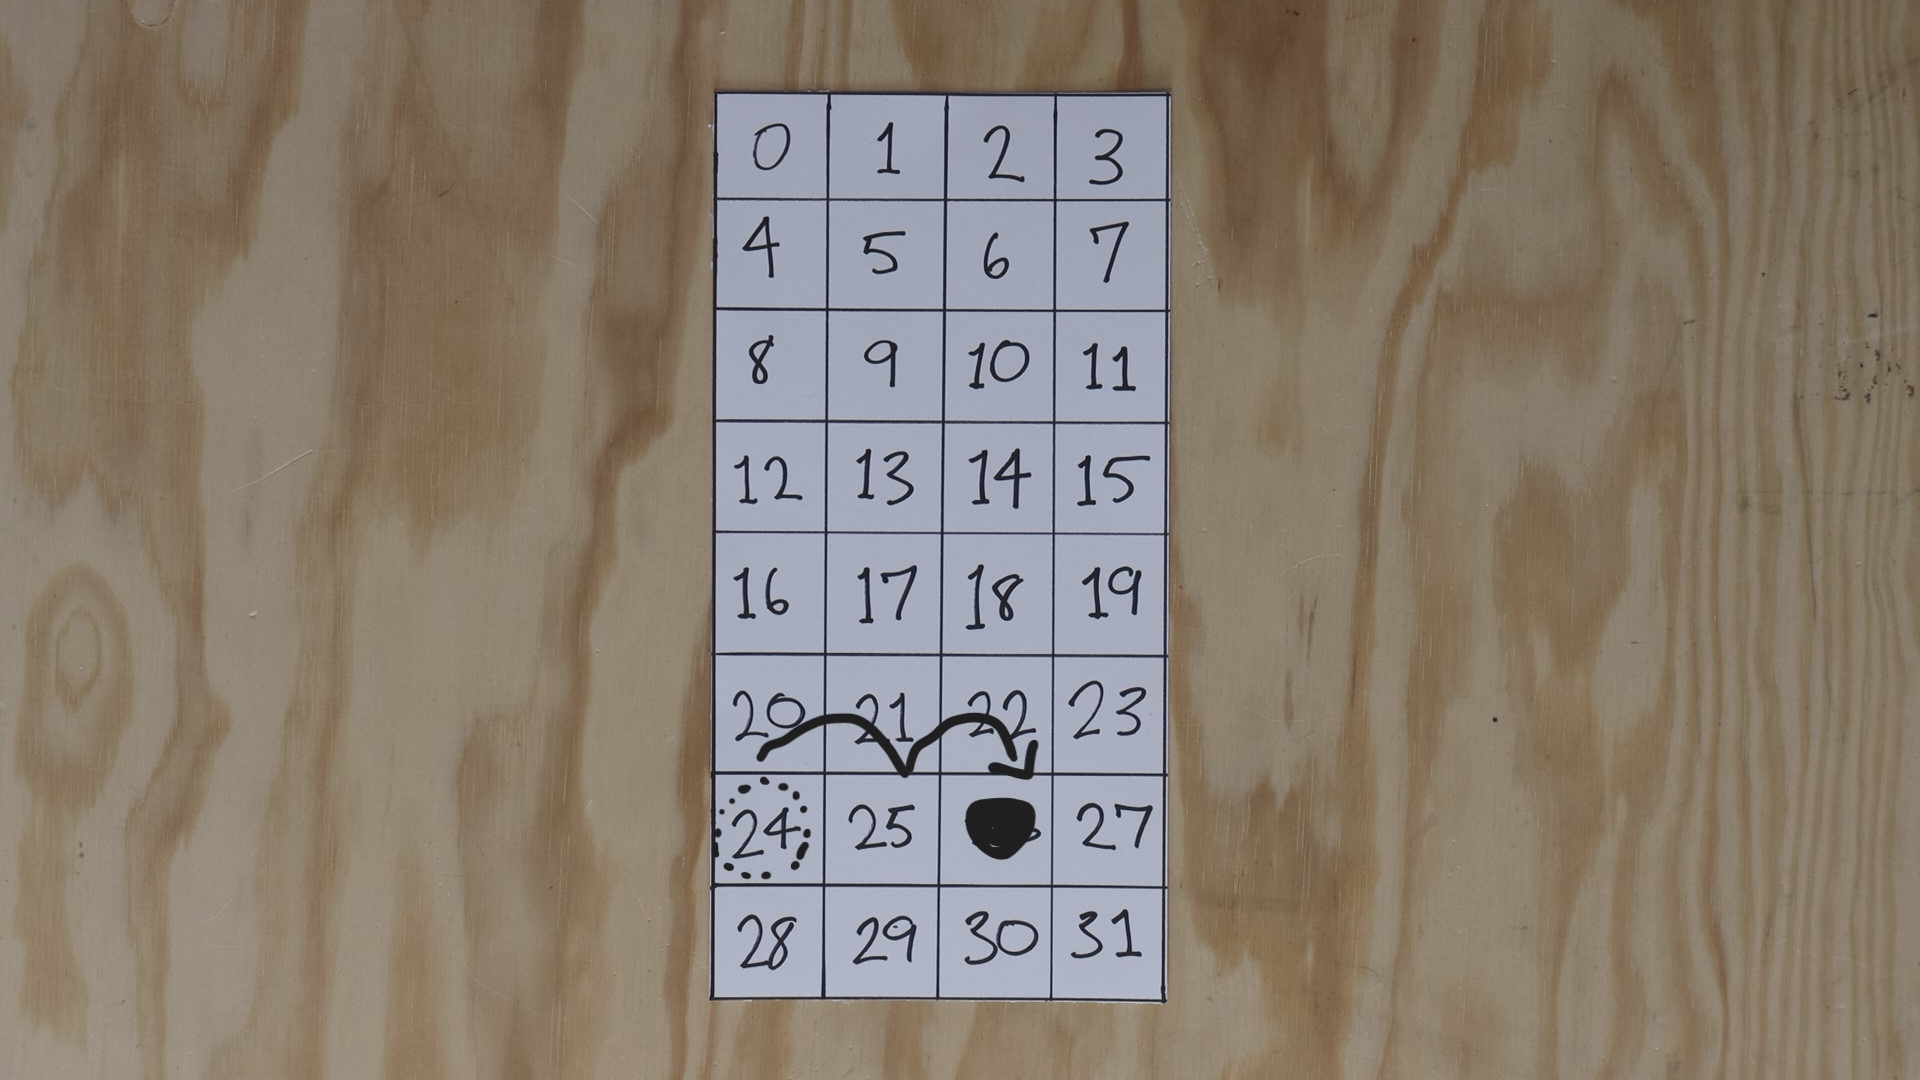 0 1 2 3
4 5 6 7
8 9 10 11
12 13 14 15
16 17 18 19
20 21 22 23
24 25 27
28 29 30 31